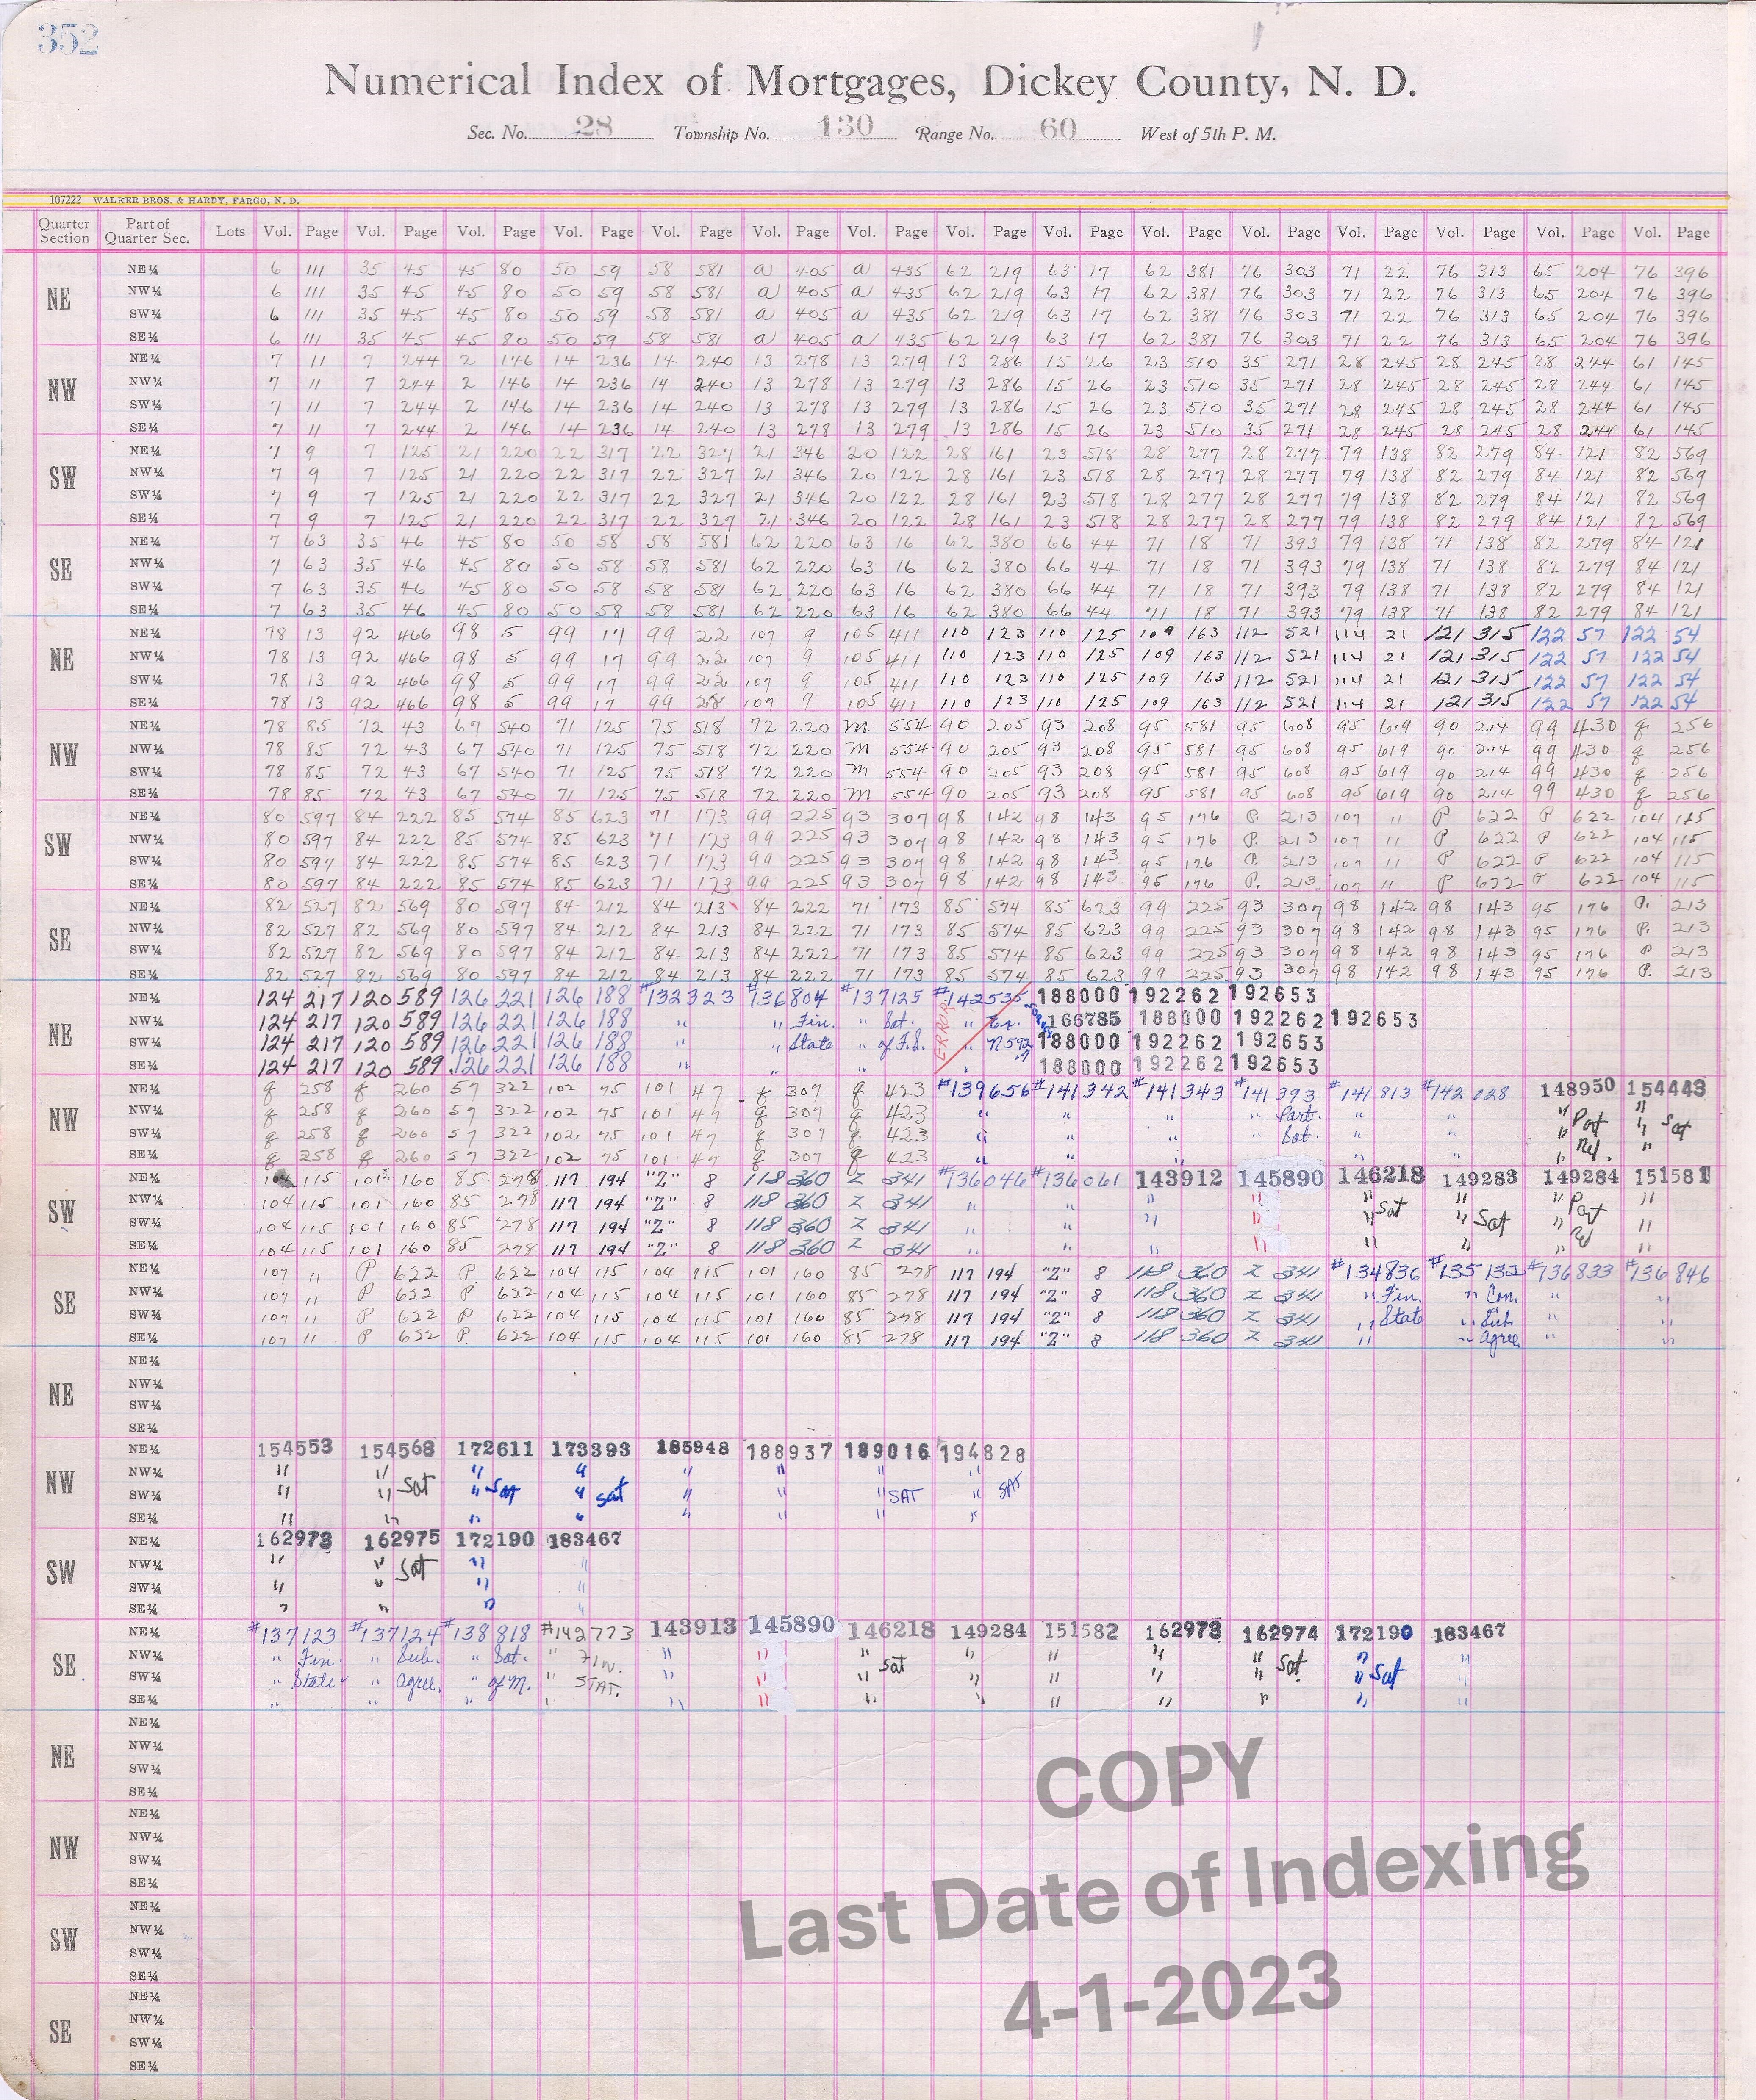 352
Numerical Index of Mortgages, Dickey County, N. D.
Sec. No. 28 Township No. 130 Range No. 60 West of 5th P. M.
107222 WALKER BROS. & HARDY, FARGO, N. D.
Quarter Section Part of Quarter Sec. Lots Vol. Page Vol. Page Vol. Page Vol. Page Vol. Page Vol. Page Vol. Page Vol. Page Vol. Page Vol. Page Vol. Page Vol. Page Vol. Page Vol. Page Vol. Page
NE
NE¼ 6 111 35 45 45 80 50 59 58 581 a 405 a 435 62 219 63 17 62 381 76 303 71 22 76 313 65 204 76 396
NW¼ 6 111 35 45 45 80 50 59 58 581 a 405 a 435 62 219 63 17 62 381 76 303 71 22 76 313 65 204 76 396
SW¼ 6 111 35 45 45 80 50 59 58 581 a 405 a 435 62 219 63 17 62 381 76 303 71 22 76 313 65 204 76 396
SE¼ 6 111 35 45 45 80 50 59 58 581 a 405 a 435 62 219 63 17 62 381 76 303 71 22 76 313 65 204 76 396
NW
NE¼ 7 11 7 244 2 146 14 236 14 240 13 278 13 279 13 286 15 26 23 510 35 271 28 245 28 245 28 244 61 145
NW¼ 7 11 7 244 2 146 14 236 14 240 13 278 13 279 13 286 15 26 23 510 35 271 28 245 28 245 28 244 61 145
SW¼ 7 11 7 244 2 146 14 236 14 240 13 278 13 279 13 286 15 26 23 510 35 271 28 245 28 245 28 244 61 145
SE¼ 7 11 7 244 2 146 14 236 14 240 13 278 13 279 13 286 15 26 23 510 35 271 28 245 28 245 28 244 61 145
SW
NE¼ 7 9 7 125 21 220 22 317 22 327 21 346 20 122 28 161 23 518 28 277 28 277 79 138 82 279 84 121 82 569
NW¼ 7 9 7 125 21 220 22 317 22 327 21 346 20 122 28 161 23 518 28 277 28 277 79 138 82 279 84 121 82 569
SW¼ 7 9 7 125 21 220 22 317 22 327 21 346 20 122 28 161 23 518 28 277 28 277 79 138 82 279 84 121 82 569
SE¼ 7 9 7 125 21 220 22 317 22 327 21 346 20 122 28 161 23 518 28 277 28 277 79 138 82 279 84 121 82 569
SE
NE¼ 7 63 35 46 45 80 50 58 58 581 62 220 63 16 62 380 66 44 71 18 71 393 79 138 71 138 82 279 84 121
NW¼ 7 63 35 46 45 80 50 58 58 581 62 220 63 16 62 380 66 44 71 18 71 393 79 138 71 138 82 279 84 121
SW¼ 7 63 35 46 45 80 50 58 58 581 62 220 63 16 62 380 66 44 71 18 71 393 79 138 71 138 82 279 84 121
SE¼ 7 63 35 46 45 80 50 58 58 581 62 220 63 16 62 380 66 44 71 18 71 393 79 138 71 138 82 279 84 121
NE
NE¼ 78 13 92 466 98 5 99 17 99 22 107 9 105 411 110 123 110 125 109 163 112 521 114 21 121 315 122 57 122 54
NW¼ 78 13 92 466 98 5 99 17 99 22 107 9 105 411 110 123 110 125 109 163 112 521 114 21 121 315 122 57 122 54
SW¼ 78 13 92 466 98 5 99 17 99 22 107 9 105 411 110 123 110 125 109 163 112 521 114 21 121 315 122 57 122 54
SE¼ 78 13 92 466 98 5 99 17 99 107 9 105 411 110 123 110 125 109 163 112 521 114 21 121 315 122 57 122 54
NW
NE¼ 78 85 72 43 67 540 71 125 75 518 72 220 M 554 90 205 93 208 95 581 95 608 95 619 90 214 99 430 q 256
NW¼ 78 85 72 43 67 540 71 125 75 518 72 220 M 554 90 205 93 208 95 581 95 608 95 619 90 214 99 430 q 256
SW¼ 78 85 72 43 67 540 71 125 75 518 72 220 M 554 90 205 93 208 95 581 95 608 95 619 90 214 99 430 q 256
SE¼ 78 85 72 43 67 540 71 125 75 518 72 220 M 554 90 205 93 208 95 581 95 608 95 619 90 214 99 430 q 256
SW
NE¼ 80 597 84 222 85 574 85 623 71 173 99 225 93 307 98 142 98 143 95 176 P. 213 107 11 P 622 P 622 104 115
NW¼ 80 597 84 222 85 574 85 623 71 173 99 225 93 307 98 142 98 143 95 176 P. 213 107 11 P 622 P 622 104 115
SW¼ 80 597 84 222 85 574 85 623 71 173 99 225 93 307 98 142 98 143 95 176 P. 213 107 11 P 622 P 622 104 115
SE¼ 80 597 84 222 85 574 85 623 71 173 99 225 93 307 98 142 98 143 95 176 P. 213 107 11 P 622 P 622 104 115
SE
NE¼ 82 527 82 569 80 597 84 212 84 213 84 222 71 173 85 574 85 623 99 225 93 307 98 142 98 143 95 176 P. 213
NW¼ 82 527 82 569 80 597 84 212 84 213 84 222 71 173 85 574 85 623 99 225 93 307 98 142 98 143 95 176 P. 213
SW¼ 82 527 82 569 80 597 84 212 84 213 84 222 71 173 85 574 85 623 99 225 93 307 98 142 98 143 95 176 P 213
SE¼ 82 527 82 569 80 597 84 212 84 213 84 222 71 173 85 574 85 623 99 225 93 307 98 142 98 143 95 176 P. 213
NE
NE¼ 124 217 120 589 126 221 126 188 #132323 #136804 #137125 #142535 188000 192262 192653
NW¼ 124 217 120 589 126 221 126 188 " " Fin. " Sat. " 166785 188000 192262 192653
SW¼ 124 217 120 589 126 221 126 188 " " State " of F.S. " 188000 192262 192653
SE¼ 124 217 120 589 126 221 126 188 " " " " 188000 192262 192653
ERROR
NW
NE¼ q 258 q 260 57 322 102 75 101 47 q 307 q 423 #139656 #141342 #141343 #141393 #141813 #142028 148950 154443
NW¼ q 258 q 260 57 322 102 75 101 47 q 307 q 423 " " " " Part. " " " Part " Sat
SW¼ q 258 q 260 57 322 102 75 101 47 q 307 q 423 " " " " Sat. " " " Rel. "
SE¼ q 258 q 260 57 322 102 75 101 47 q 307 q 423 " " " " " " " "
SW
NE¼ 104 115 101 160 85 278 117 194 "Z" 8 118 360 Z 341 #136046 #136061 143912 145890 146218 149283 149284 151581
NW¼ 104 115 101 160 85 278 117 194 "Z" 8 118 360 Z 341 " " " " " Sat " " Part "
SW¼ 104 115 101 160 85 278 117 194 "Z" 8 118 360 Z 341 " " " " " " Sat " Rel "
SE¼ 104 115 101 160 85 278 117 194 "Z" 8 118 360 Z 341 " " " " " " " "
SE
NE¼ 107 11 P 622 P 622 104 115 104 115 101 160 85 278 117 194 "Z" 8 118 360 Z 341 #134836 #135132 #136833 #136846
NW¼ 107 11 P 622 P 622 104 115 104 115 101 160 85 278 117 194 "Z" 8 118 360 Z 341 " Fin. " Con. " "
SW¼ 107 11 P 622 P 622 104 115 104 115 101 160 85 278 117 194 "Z" 8 118 360 Z 341 " State " Sub. " "
SE¼ 107 11 P 622 P. 622 104 115 104 115 101 160 85 278 117 194 "Z" 8 118 360 Z 341 " " Agree. " "
NE
NE¼
NW¼
SW¼
SE¼
NW
NE¼ 154553 154568 172611 173393 185948 188937 189016 194828
NW¼ " " Sat " Sat " " " " "
SW¼ " " " " Sat " " " SAT " SAT
SE¼ " " " " " " " "
SW
NE¼ 162973 162975 172190 183467
NW¼ " " Sat " "
SW¼ " " " "
SE¼ " " " "
SE
NE¼ #137123 #137124 #138818 #142773 143913 145890 146218 149284 151582 162973 162974 172190 183467
NW¼ " Fin. " Sub. " Sat. " FIN. " " " Sat " " " " Sat " "
SW¼ " State " Agree. " of M. " STAT. " " " " " " " " Sat "
SE¼ " " " " " " " " " " " " "
NE
NE¼
NW¼
SW¼
SE¼
NW
NE¼
NW¼
SW¼
SE¼
SW
NE¼
NW¼
SW¼
SE¼
SE
NE¼
NW¼
SW¼
SE¼
COPY
Last Date of Indexing
4-1-2023